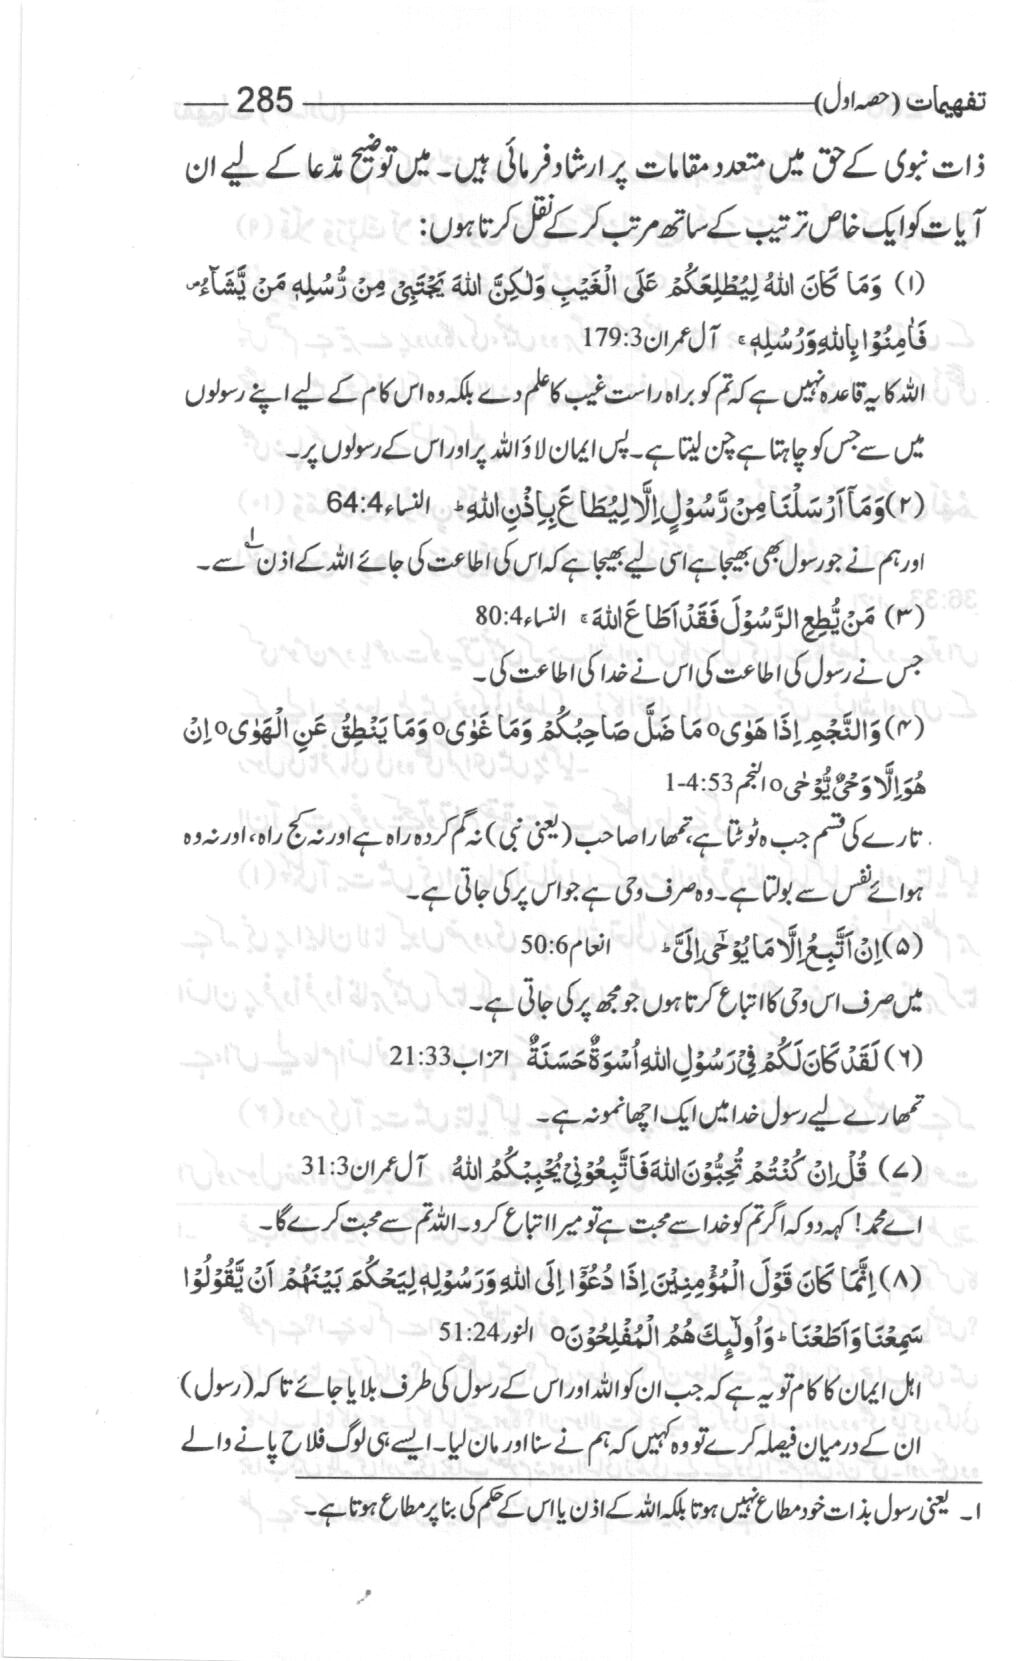 تفہیمات (حصہ اول) 285
ذات نبوی کے حق میں متعدد مقامات پر ارشاد فرمائی ہیں۔ میں توضیح مدّعا کے لیے ان
آیات کو ایک خاص ترتیب کے ساتھ مرتب کر کے نقل کرتا ہوں:
(۱) وَمَا كَانَ اللهُ لِيُطْلِعَكُمْ عَلَى الْغَيْبِ وَلٰكِنَّ اللهَ يَجْتَبِىْ مِنْ رُّسُلِهٖ مَنْ يَّشَآءُ ۠
فَاٰمِنُوْا بِاللهِ وَرُسُلِهٖ ۚ آل عمران 179:3
اللہ کا یہ قاعدہ نہیں ہے کہ تم کو براہ راست غیب کا علم دے بلکہ وہ اس کام کے لیے اپنے رسولوں
میں سے جس کو چاہتا ہے چن لیتا ہے۔ پس ایمان لاؤ اللہ پر اور اس کے رسولوں پر۔
(۲) وَمَآ اَرْسَلْنَا مِنْ رَّسُوْلٍ اِلَّا لِيُطَاعَ بِاِذْنِ اللهِ ؕ النساء 64:4
اور ہم نے جو رسول بھی بھیجا ہے اسی لیے بھیجا ہے کہ اس کی اطاعت کی جائے اللہ کے اذن ۱ سے۔
(۳) مَنْ يُّطِعِ الرَّسُوْلَ فَقَدْ اَطَاعَ اللهَ ۚ النساء 80:4
جس نے رسول کی اطاعت کی اس نے خدا کی اطاعت کی۔
(۴) وَالنَّجْمِ اِذَا هَوٰى o مَا ضَلَّ صَاحِبُكُمْ وَمَا غَوٰى o وَمَا يَنْطِقُ عَنِ الْهَوٰى o اِنْ
هُوَ اِلَّا وَحْىٌ يُّوْحٰى o النجم 1-4:53
تارے کی قسم جب وہ ٹوٹتا ہے، تمھارا صاحب (یعنی نبی) نہ گم کردہ راہ ہے اور نہ کج راہ، اور نہ وہ
ہوائے نفس سے بولتا ہے۔ وہ صرف وحی ہے جو اس پر کی جاتی ہے۔
(۵) اِنْ اَتَّبِعُ اِلَّا مَا يُوْحٰٓى اِلَىَّ ؕ انعام 50:6
میں صرف اس وحی کا اتباع کرتا ہوں جو مجھ پر کی جاتی ہے۔
(۶) لَقَدْ كَانَ لَكُمْ فِىْ رَسُوْلِ اللهِ اُسْوَةٌ حَسَنَةٌ احزاب 21:33
تمھارے لیے رسول خدا میں ایک اچھا نمونہ ہے۔
(۷) قُلْ اِنْ كُنْتُمْ تُحِبُّوْنَ اللهَ فَاتَّبِعُوْنِىْ يُحْبِبْكُمُ اللهُ آل عمران 31:3
اے محمد! کہہ دو کہ اگر تم کو خدا سے محبت ہے تو میرا اتباع کرو۔ اللہ تم سے محبت کرے گا۔
(۸) اِنَّمَا كَانَ قَوْلَ الْمُؤْمِنِيْنَ اِذَا دُعُوْٓا اِلَى اللهِ وَرَسُوْلِهٖ لِيَحْكُمَ بَيْنَهُمْ اَنْ يَّقُوْلُوْا
سَمِعْنَا وَاَطَعْنَا ؕ وَاُولٰٓئِكَ هُمُ الْمُفْلِحُوْنَ o النور 51:24
اہل ایمان کا کام تو یہ ہے کہ جب ان کو اللہ اور اس کے رسول کی طرف بلایا جائے تاکہ (رسول)
ان کے درمیان فیصلہ کرے تو وہ کہیں کہ ہم نے سنا اور مان لیا۔ ایسے ہی لوگ فلاح پانے والے
۱۔ یعنی رسول بذات خود مطاع نہیں ہوتا بلکہ اللہ کے اذن یا اس کے حکم کی بنا پر مطاع ہوتا ہے۔